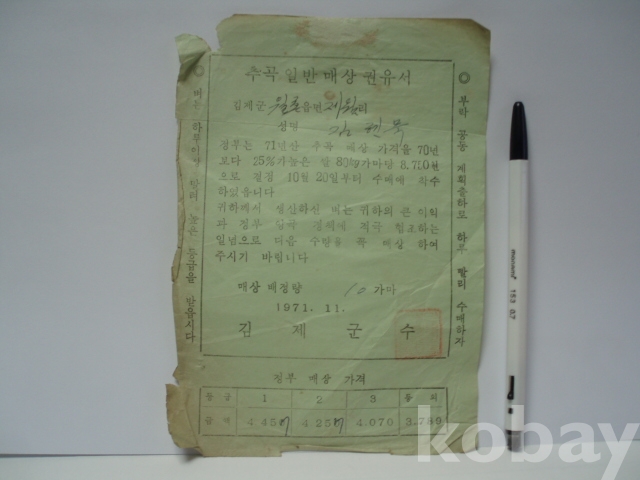 추곡 일반 매상 권유서
김제군 월촌읍면 제월리
성명 김
정부는 71년산 추곡 매상 가격을 70년
보다 25%가높은 쌀 80kg가마당 8,750원
으로 결정 10월 20일부터 수매에 착수
하였읍니다
귀하께서 생산하신 벼는 귀하의 큰 이익
과 정부 양곡 정책에 적극 협조하는
일념으로 다음 수량을 꼭 매상 하여
주시기 바립니다
매상 배정량 10 가마
1971. 11.
김 제 군 수
정부 매상 가격
등급 1 2 3 등외
금액 4.457 4.257 4.070 3.789
◎ 벼는 하루이라 빨리 높은 등급을 받읍시다
◎ 부락 공동 계획출하로 하루 빨리 수매하자
monami 153 0.7
kobay